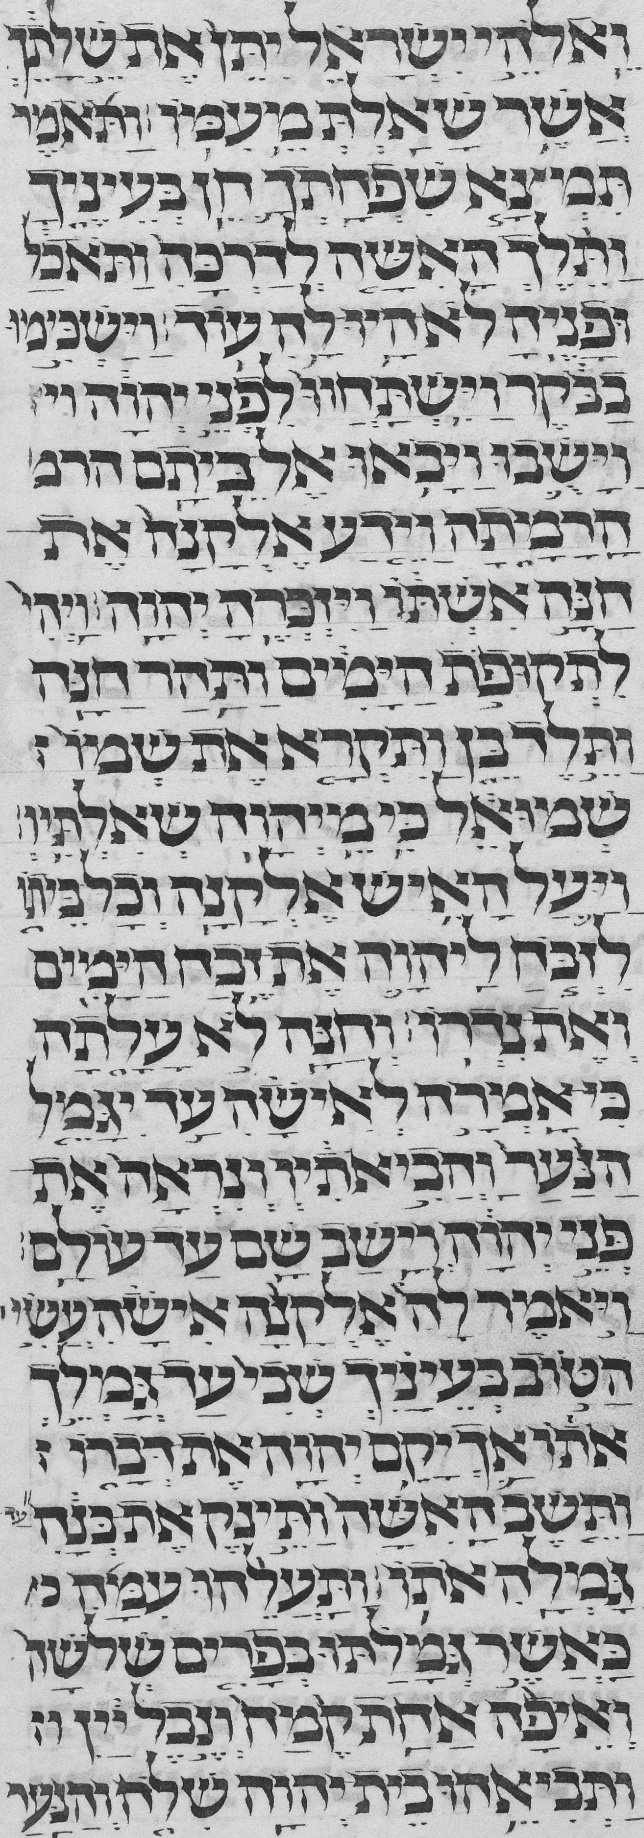 ואלהי ישראל יתן את שלתך
אשר שאלת מעמו: ותאמר
תמצא שפחתך חן בעיניך
ותלך האשה לדרכה ותאכל
ופניה לא היו לה עוד: וישכימו
בבקר וישתחוו לפני יהוה וי
וישבו ויבאו אל ביתם הרמ
הרמתה וידע אלקנה את
חנה אשתו ויזכרה יהוה: ויהי
לתקופת הימים ותהר חנה
ותלד בן ותקרא את שמו
שמואל כי מיהוה שאלתיו:
ויעל האיש אלקנה וכל ביתו
לזבח ליהוה את זבח הימים
ואת נדרו: וחנה לא עלתה
כי אמרה לאישה עד יגמל
הנער והביאתיו ונראה את
פני יהוה וישב שם עד עולם:
ויאמר לה אלקנה אישה עשי
הטוב בעיניך שבי עד גמלך
אתו אך יקם יהוה את דברו
ותשב האשה ותינק את בנה עד
גמלה אתו: ותעלהו עמה כ
כאשר גמלתו בפרים שלשה
ואיפה אחת קמח ונבל יין וי
ותביאהו בית יהוה שלה והנער